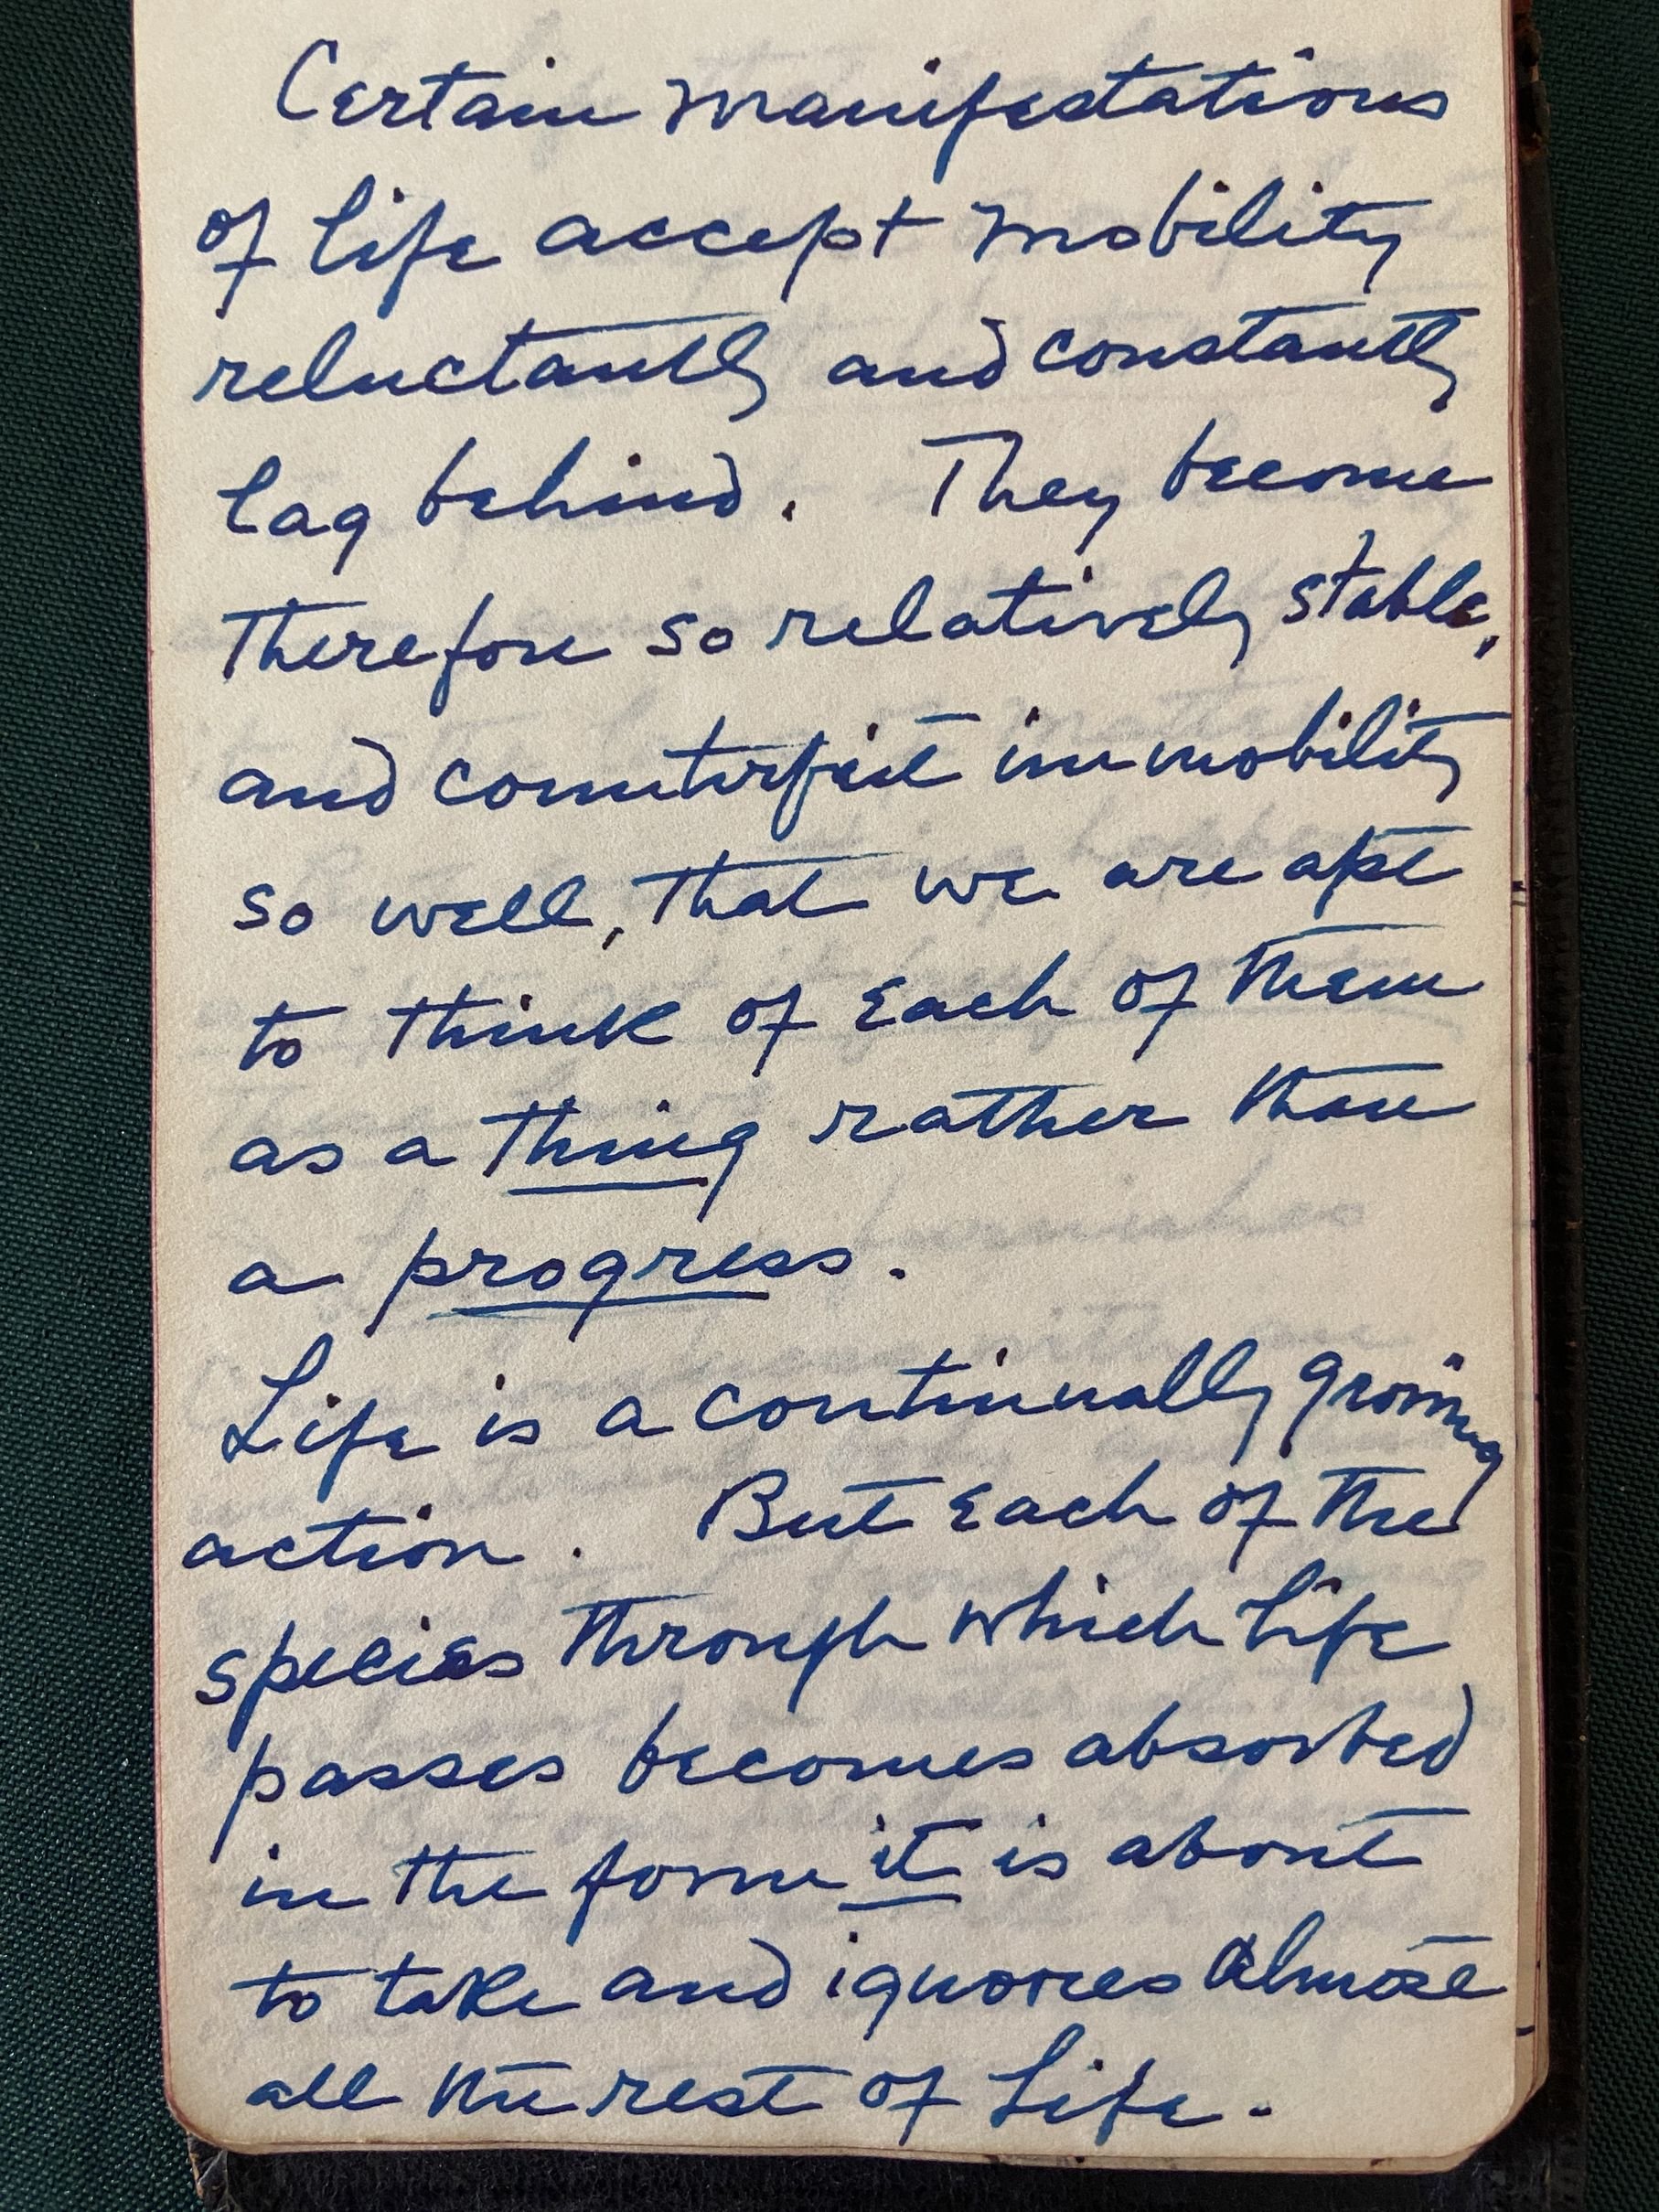 Certain manifestations
of life accept mobility
reluctantly and constantly
lag behind. They become
therefore so relatively stable,
and counterfeit immobility
so well, that we are apt
to think of each of them
as a thing rather than
a progress.
Life is a continually growing
action. But each of the
species through which Life
passes becomes absorbed
in the form it is about
to take and ignores almost
all the rest of Life.